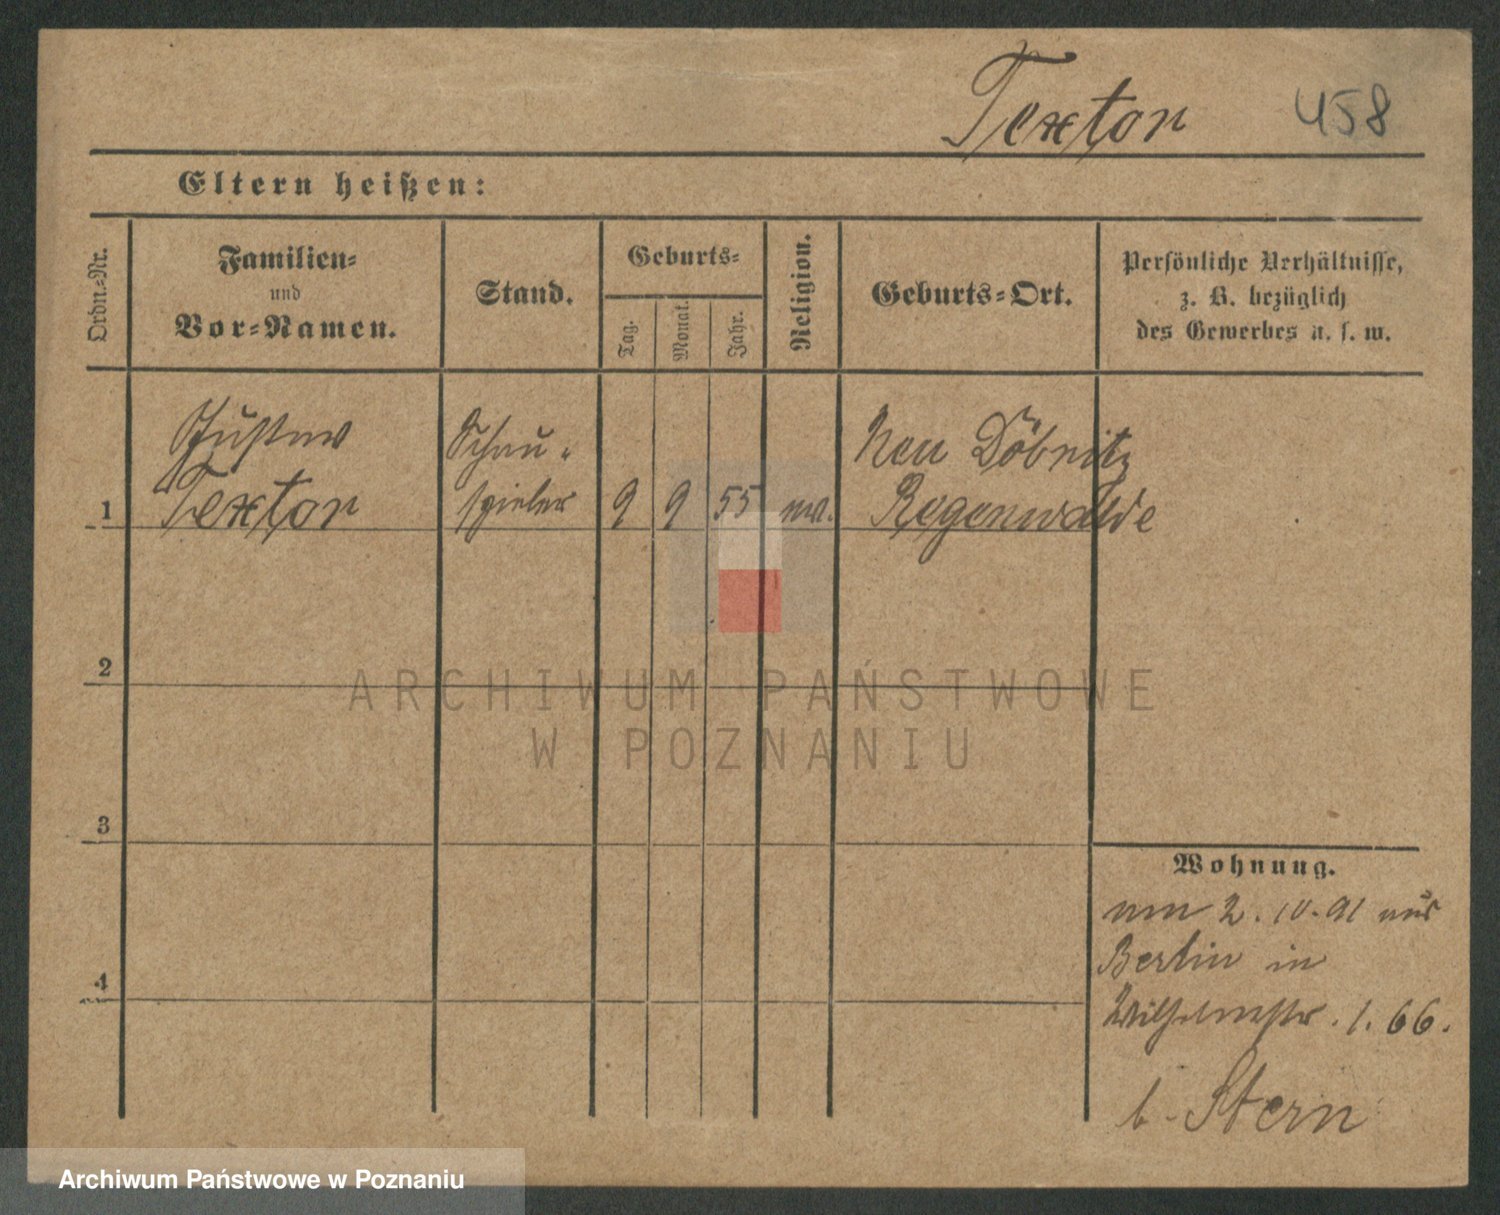 Textor 458
Eltern heißen:
Ordn.-Nr.
Familien-
und
Vor-Namen.
Stand.
Geburts-
Tag.
Monat.
Jahr.
Religion.
Geburts-Ort.
Persönliche Verhältnisse,
z. B. bezüglich
des Gewerbes u. s. w.
Gustav
Textor
Schau-
spieler
1
9 9 55 ev.
Neu Döbnitz
Regenwalde
2
ARCHIWUM PAŃSTWOWE
W POZNANIU
3
Wohnung.
2. 10. 91 aus
Berlin in
4
Wilhelmstr. 1. 66.
b. Stern
Archiwum Państwowe w Poznaniu